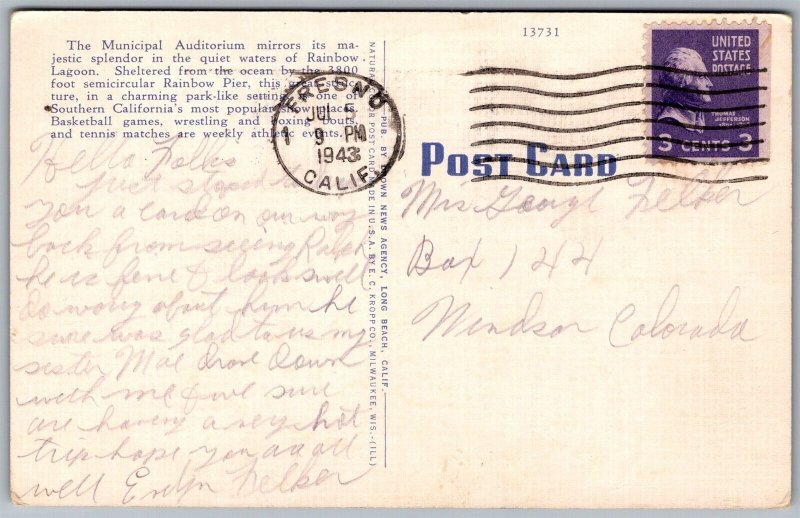 13731
The Municipal Auditorium mirrors its ma-
jestic splendor in the quiet waters of Rainbow
Lagoon. Sheltered from the ocean by the 3800
foot semicircular Rainbow Pier, this great struc-
ture, in a charming park-like setting, is one of
Southern California's most popular show places.
Basketball games, wrestling and boxing bouts,
and tennis matches are weekly athletic events.
FRESNO
JUL 5
9 PM
1943
CALIF.
UNITED
STATES
POSTAGE
THOMAS
JEFFERSON
3 CENTS 3
POST CARD
PUB. BY TOWN NEWS AGENCY, LONG BEACH, CALIF.
NATURAL COLOR POST CARD MADE IN U.S.A. BY E. C. KROPP CO., MILWAUKEE, WIS.-(ILL)
Hello Folks
Just stoped to
you a card on our way
back from seeing Ralph
he is fine & looks well
Do worry about him he
sure was glad to us my
sister Mae drove down
with me & we sure
are having a very hot
trip hope you aa all
well Evelyn Felker
Mrs George Felker
Box 144
Windsor Colorado